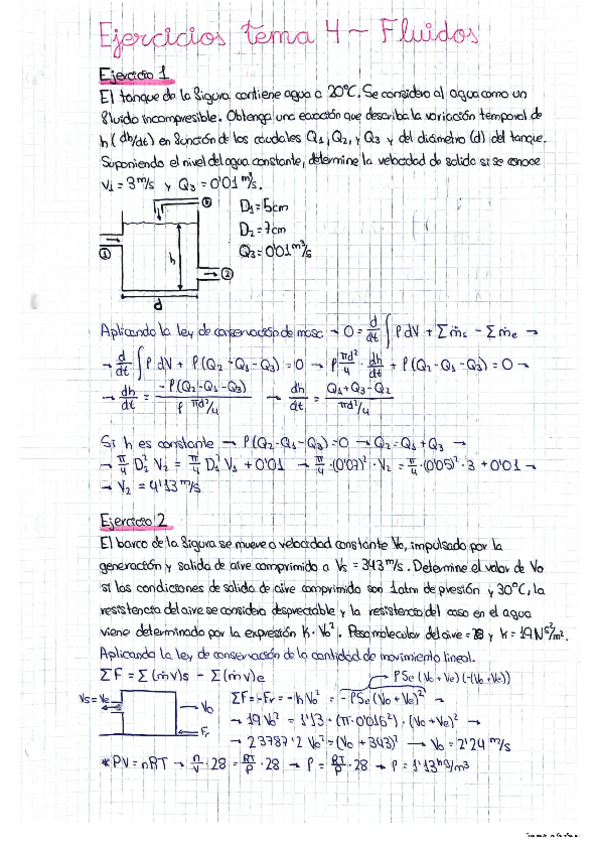 Ejercicios tema 4 ~ Fluidos
Ejercicio 1
El tanque de la figura contiene agua a 20°C. Se considera al agua como un
fluido incompresible. Obtenga una ecuación que describa la variación temporal de
h (dh/dt) en función de los caudales Q1, Q2, y Q3 y del diámetro (d) del tanque.
Suponiendo el nivel del agua constante, determine la velocidad de salida si se conoce
V1 = 3 m/s y Q3 = 0'01 m³/s.
③
D1 = 5cm
D2 = 7cm
Q3 = 0'01 m³/s
①
h
②
d
Aplicando la ley de conservación de masa → 0 = d/dt ∫ ρ dV + Σ ṁs - Σ ṁe →
→ d/dt ∫ ρ dV + ρ (Q2 - Q1 - Q3) = 0 → ρ πd²/4 · dh/dt + ρ (Q2 - Q1 - Q3) = 0 →
→ dh/dt = -ρ(Q2-Q1-Q3) / ρ πd²/4 → dh/dt = Q1+Q3-Q2 / πd²/4
Si h es constante → ρ(Q2-Q1-Q3) = 0 → Q2 = Q1 + Q3 →
→ π/4 D2² V2 = π/4 D1² V1 + 0'01 → π/4 · (0'07)² · V2 = π/4 · (0'05)² · 3 + 0'01 →
→ V2 = 4'13 m/s
Ejercicio 2
El barco de la figura se mueve a velocidad constante Vo, impulsado por la
generación y salida de aire comprimido a Vs = 343 m/s. Determine el valor de Vo
si las condiciones de salida de aire comprimido son 1atm de presión y 30°C, la
resistencia del aire se considera despreciable y la resistencia del casco en el agua
viene determinada por la expresión k · Vo². Peso molecular del aire = 28 y k = 19 N s²/m².
Aplicando la ley de conservación de la cantidad de movimiento lineal.
ΣF = Σ(ṁv)s - Σ(ṁv)e
ρSe (Vo + Ve) (-(Vo + Ve))
Vs = Ve
Vo
Fr
ΣF = -Fr = -k Vo² = -ρSe (Vo + Ve)² →
→ 19 Vo² = 1'13 · (π · 0'016²) · (Vo + Ve)² →
→ 23787'2 Vo² = (Vo + 343)² → Vo = 2'24 m/s
* PV = nRT → n/V · 28 = RT/P · 28 → ρ = RT/P · 28 → ρ = 1'13 kg/m³